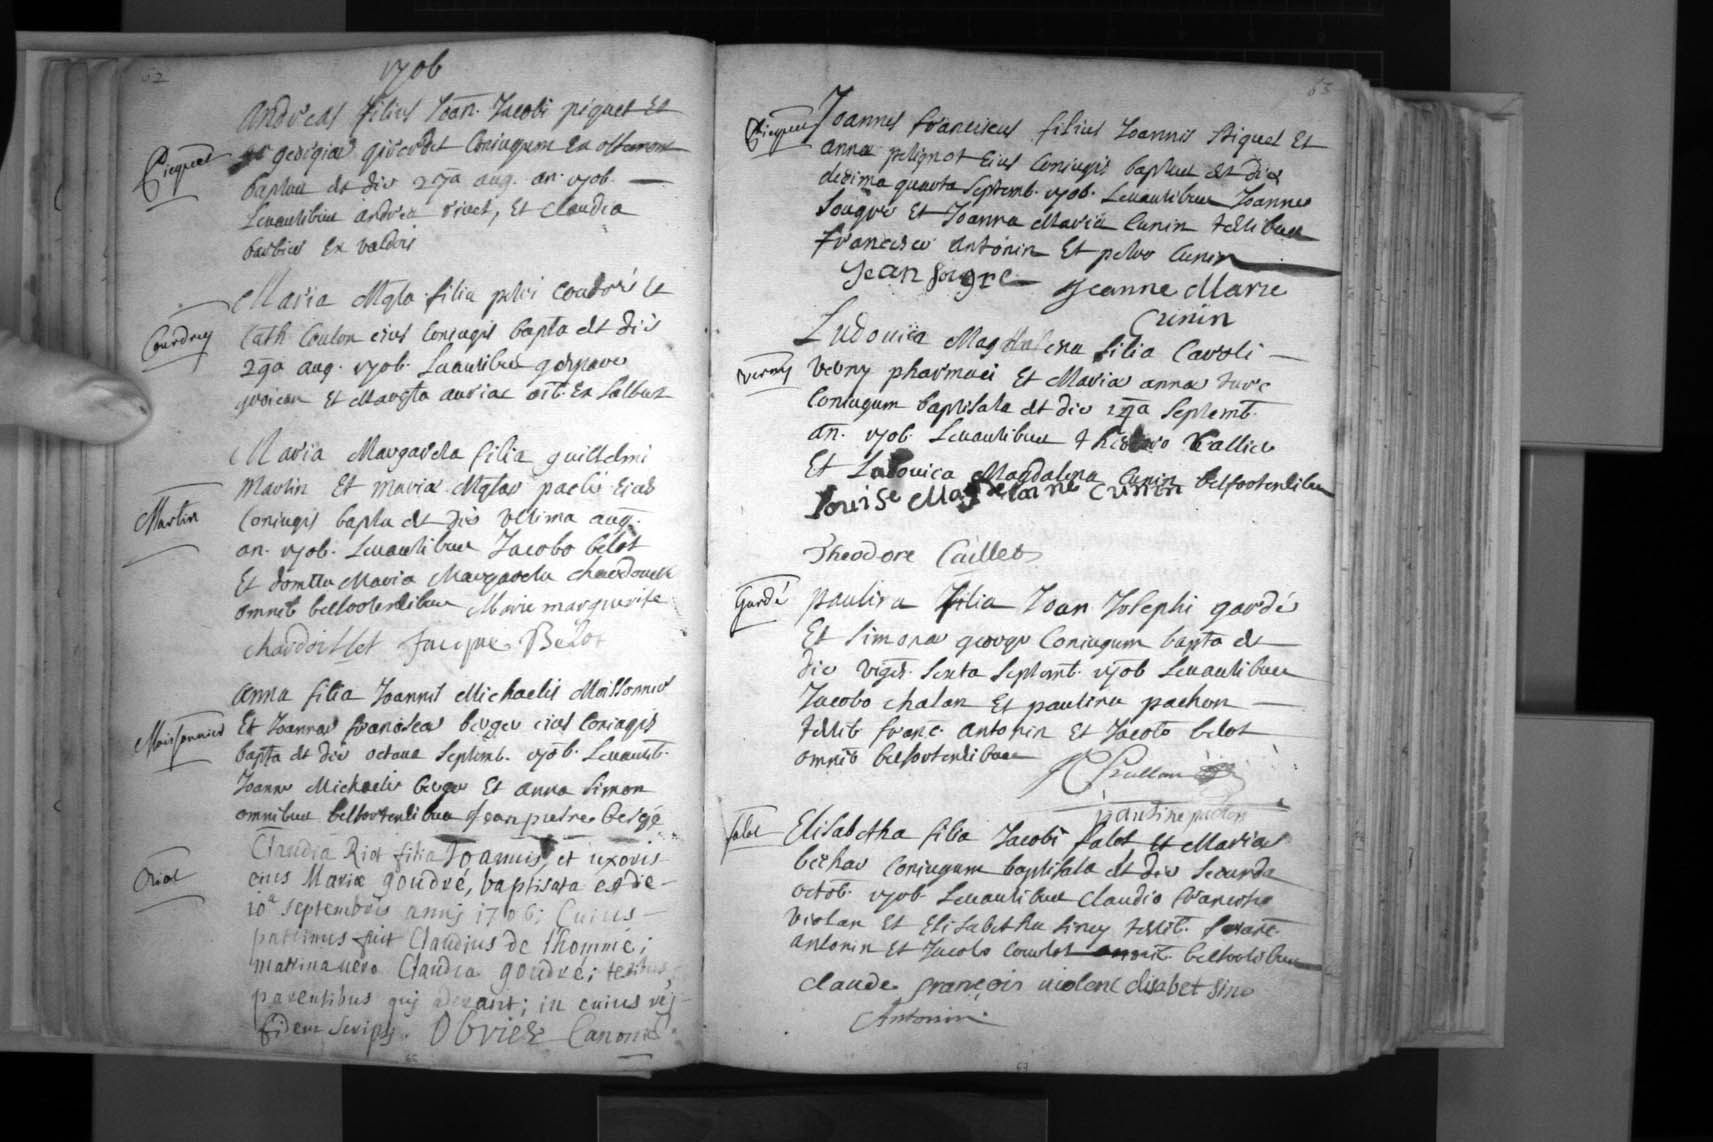 62
1706
Piequet
Andreas filius Joan. Jacobi piquet Et
georgia girardet Coniugum Ex offemont
baptus est die 27a aug. an. 1706.
Levantibus andrea vivet, Et Claudia
barbier Ex valdois
Coudray
Maria Mgta filia petri coudré Et
Cath. Coulon eius Coniugis bapta est die
29a aug. 1706. Levantibus
Et Margta
Martin
Maria Margareta filia guillelmi
Martin Et maria Mgta eius
Coniugis bapta est die ultima aug.
an. 1706. Levantibus Jacobo belot
Et domlla Maria Margareta chardouillet
omnib belfortensibus Marie marguerite
chardoillet Jacque Belot
Moissonnier
Anna filia Joannis Michaelis Moissonnier
Et Joanna francisca berger eius Coniugis
bapta est die octava Septemb. 1706. Levantib.
Joanne Michaele berger Et anna Simon
omnibus belfortensibus Jean pietre bergé
Riot
Claudia Riot filia Joannis et uxoris
eius Mariæ goudré, baptisata est die
10a septembris anni 1706; Cuius
patrinus fuit Claudius de l'homme;
matrina vero Claudia goudré; testibus
parentibus qui aderant; in cuius rei
fidem scripsi. Obriez Canonic
63
Piequet
Joannes franciscus filius Joannis Piquet Et
anna petignot Eius Coniugis baptus est die
decima quarta Septemb. 1706. Levantibus Joanne
Sougré Et Joanna Maria Cunin testibus
Francisco Antonin Et petro Cunin
Jean Sougre Jeanne Marie
Cunin
Verny
Ludovica Magdalena filia Caroli
Verny pharmaci Et Maria anna
Coniugum baptisata est die Septemb.
an. 1706. Levantibus
Et Ludovica Magdalena Cunin belfortensibus
Louise Magdelaine Cunin
Theodore Caillet
Gardé
Paulina filia Joan Josephi gardé
Et Simona george Coniugum bapta est
die viges. Sexta Septemb. 1706 Levantibus
Jacobo chalan Et paulina pachon
testib franc. antonin Et Jacobo belot
omnib belfortensibus
pautine pachon
Salot
Elisabetha filia Jacobi Salot Et Maria
Coniugum baptisata est die Secunda
octob. 1706 Levantibus Claudio francisco
violan Et Elisabetha Siney testib.
antonin Et Jacobo belfortensibus
claude françois violant elisabet sine
Antonin